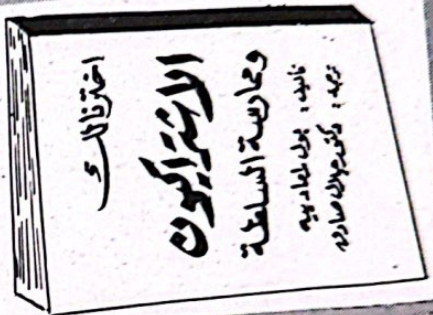 اخترنا لك
الاشتراكيون
وممارسة السلطة
تأليف : بول رامادييه
ترجمة : دكتور جلال صادق